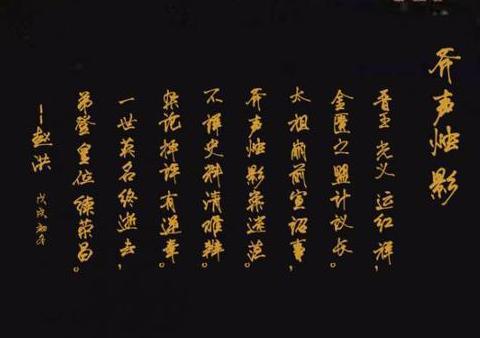 斧声烛影
晋王光义运红祥，
金匮之盟计议长。
太祖崩前宣诏事，
斧声烛影案迷茫。
不详史料清难辩。
论抨评有逆章。
一世英名终逝去，
弟登皇位续荣昌。
——赵洪 戊戌初冬